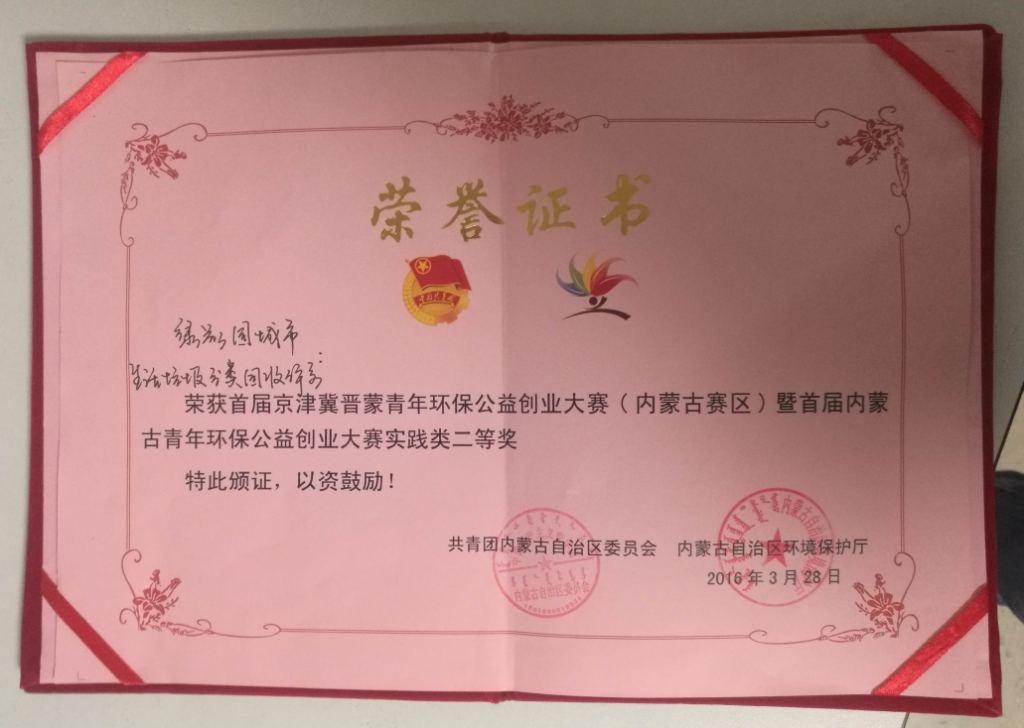 荣誉证书
城市
生活垃圾分类回收
荣获首届京津冀晋蒙青年环保公益创业大赛（内蒙古赛区）暨首届内蒙
古青年环保公益创业大赛实践类二等奖
特此颁证，以资鼓励！
共青团内蒙古自治区委员会 内蒙古自治区环境保护厅
2016年3月28日
内蒙古自治区委员会